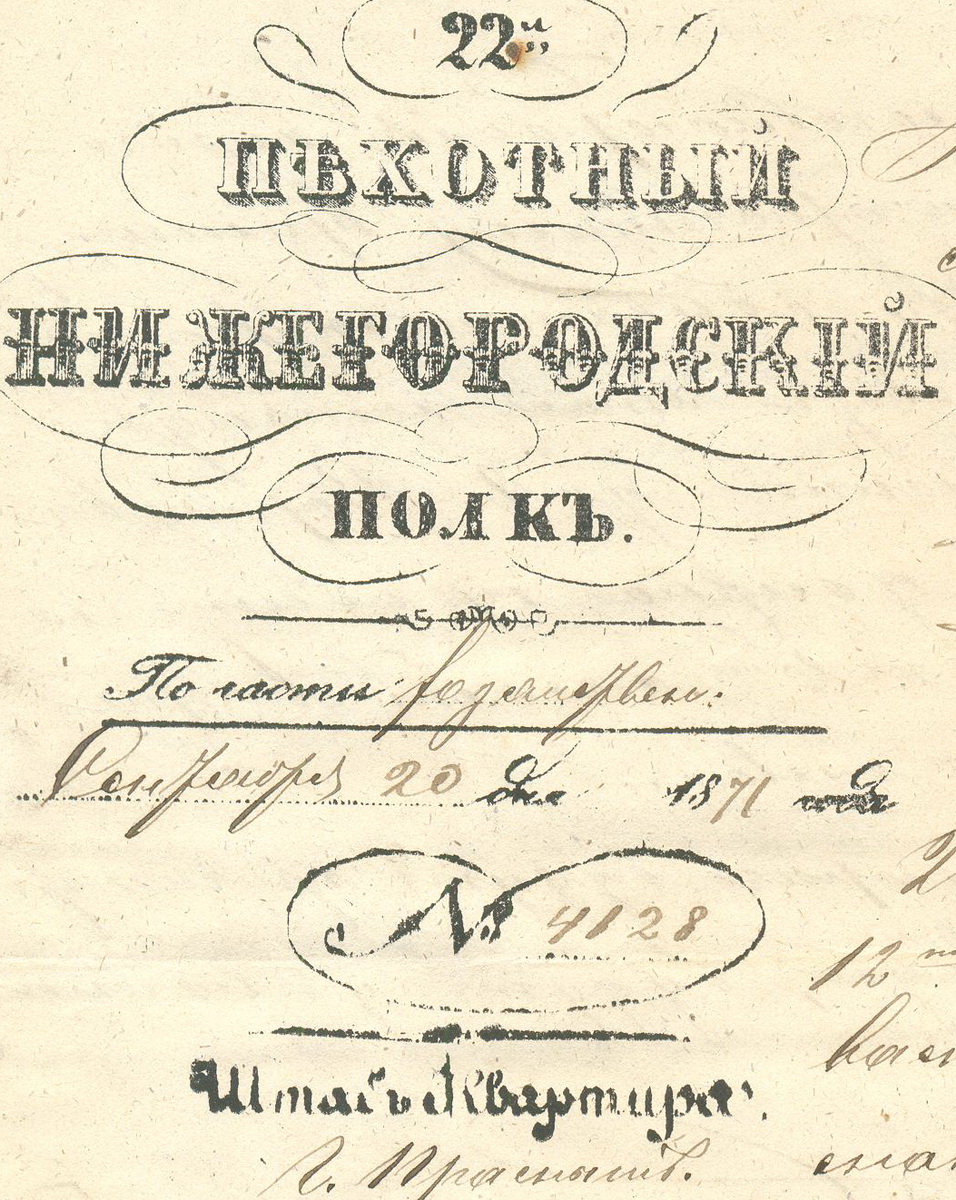 22й
ПѢХОТНЫЙ
НИЖЕГОРОДСКІЙ
ПОЛКЪ.
По части хозяйствен:
Сентября 20 дня 1871 года
№ 4128
Штабъ Квартира.
г. Праснышъ.
12